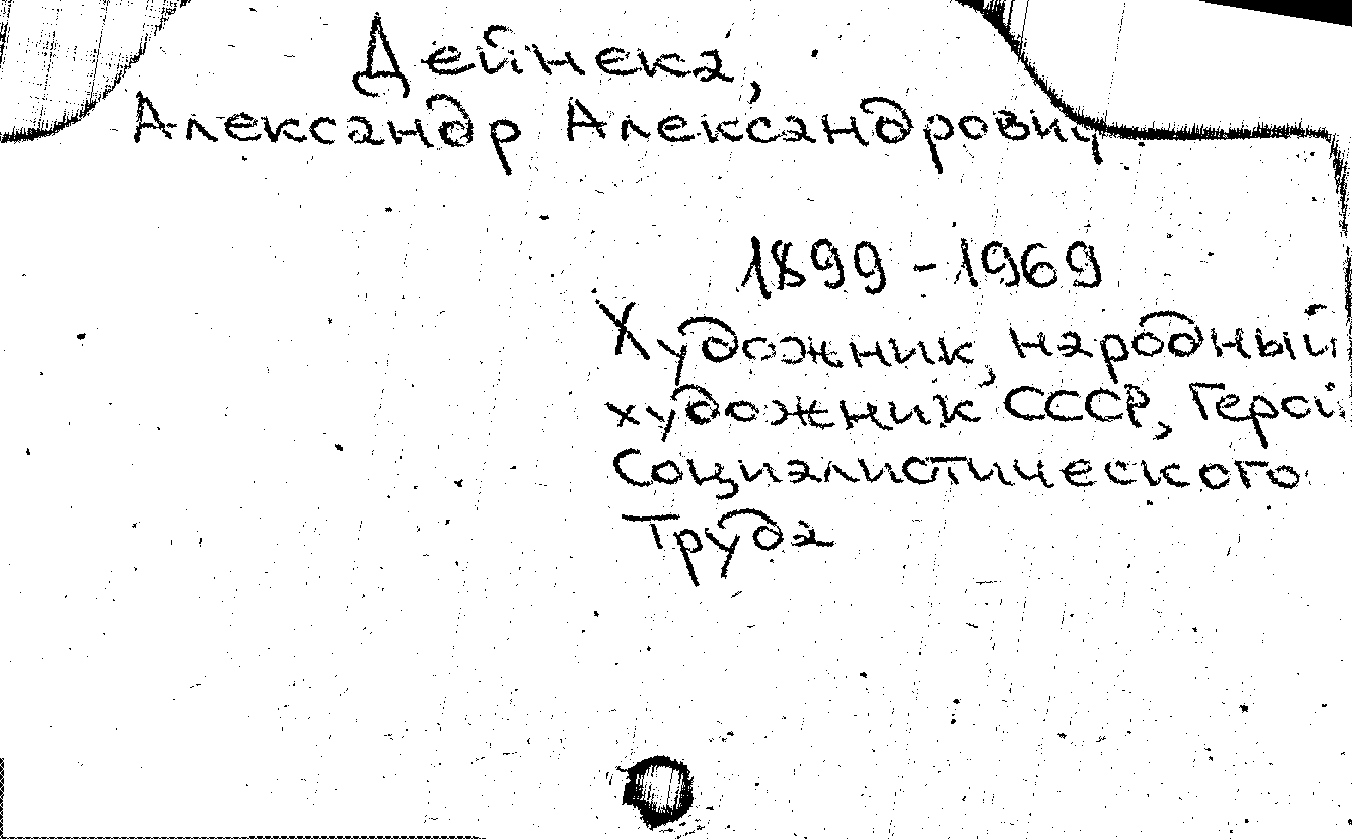 Дейнека,
Александр Александрович
1899 - 1969
Художник, народный
художник СССР, Герой
Социалистического
Труда